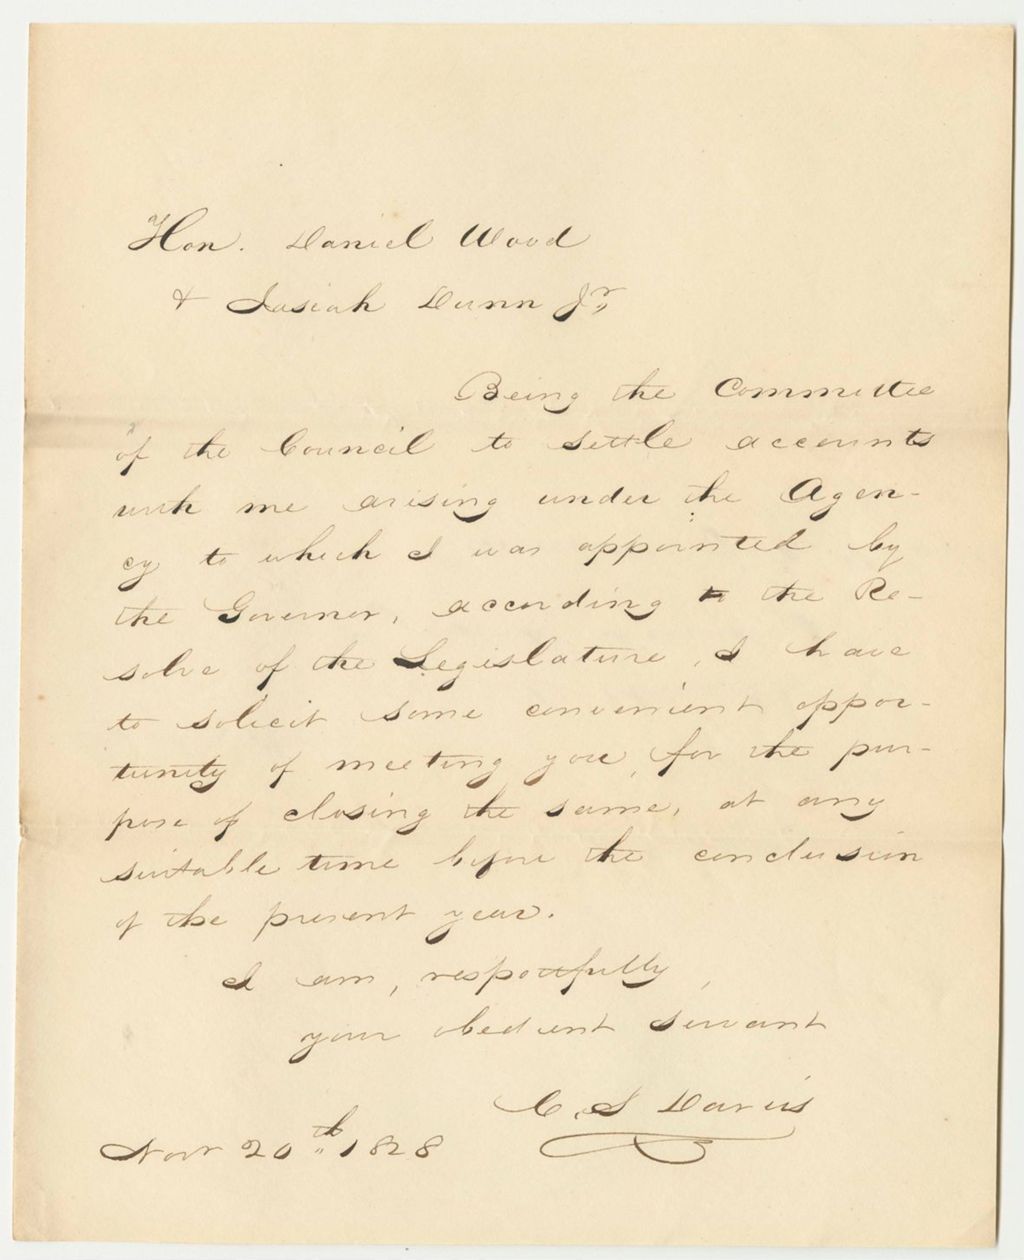 Hon. Daniel Wood
& Josiah Dunn Jr,
Being the Committee
of the Council to settle accounts
with me arising under the Agen-
cy to which I was appointed by
the Governor, according to the Re-
solve of the Legislature, I have
to solicit some convenient oppor-
tunity of meeting you, for the pur-
pose of closing the same, at any
suitable time before the conclusion
of the present year.
I am, respectfully,
your obedient servant
C. S Davis
Novr 20th 1828